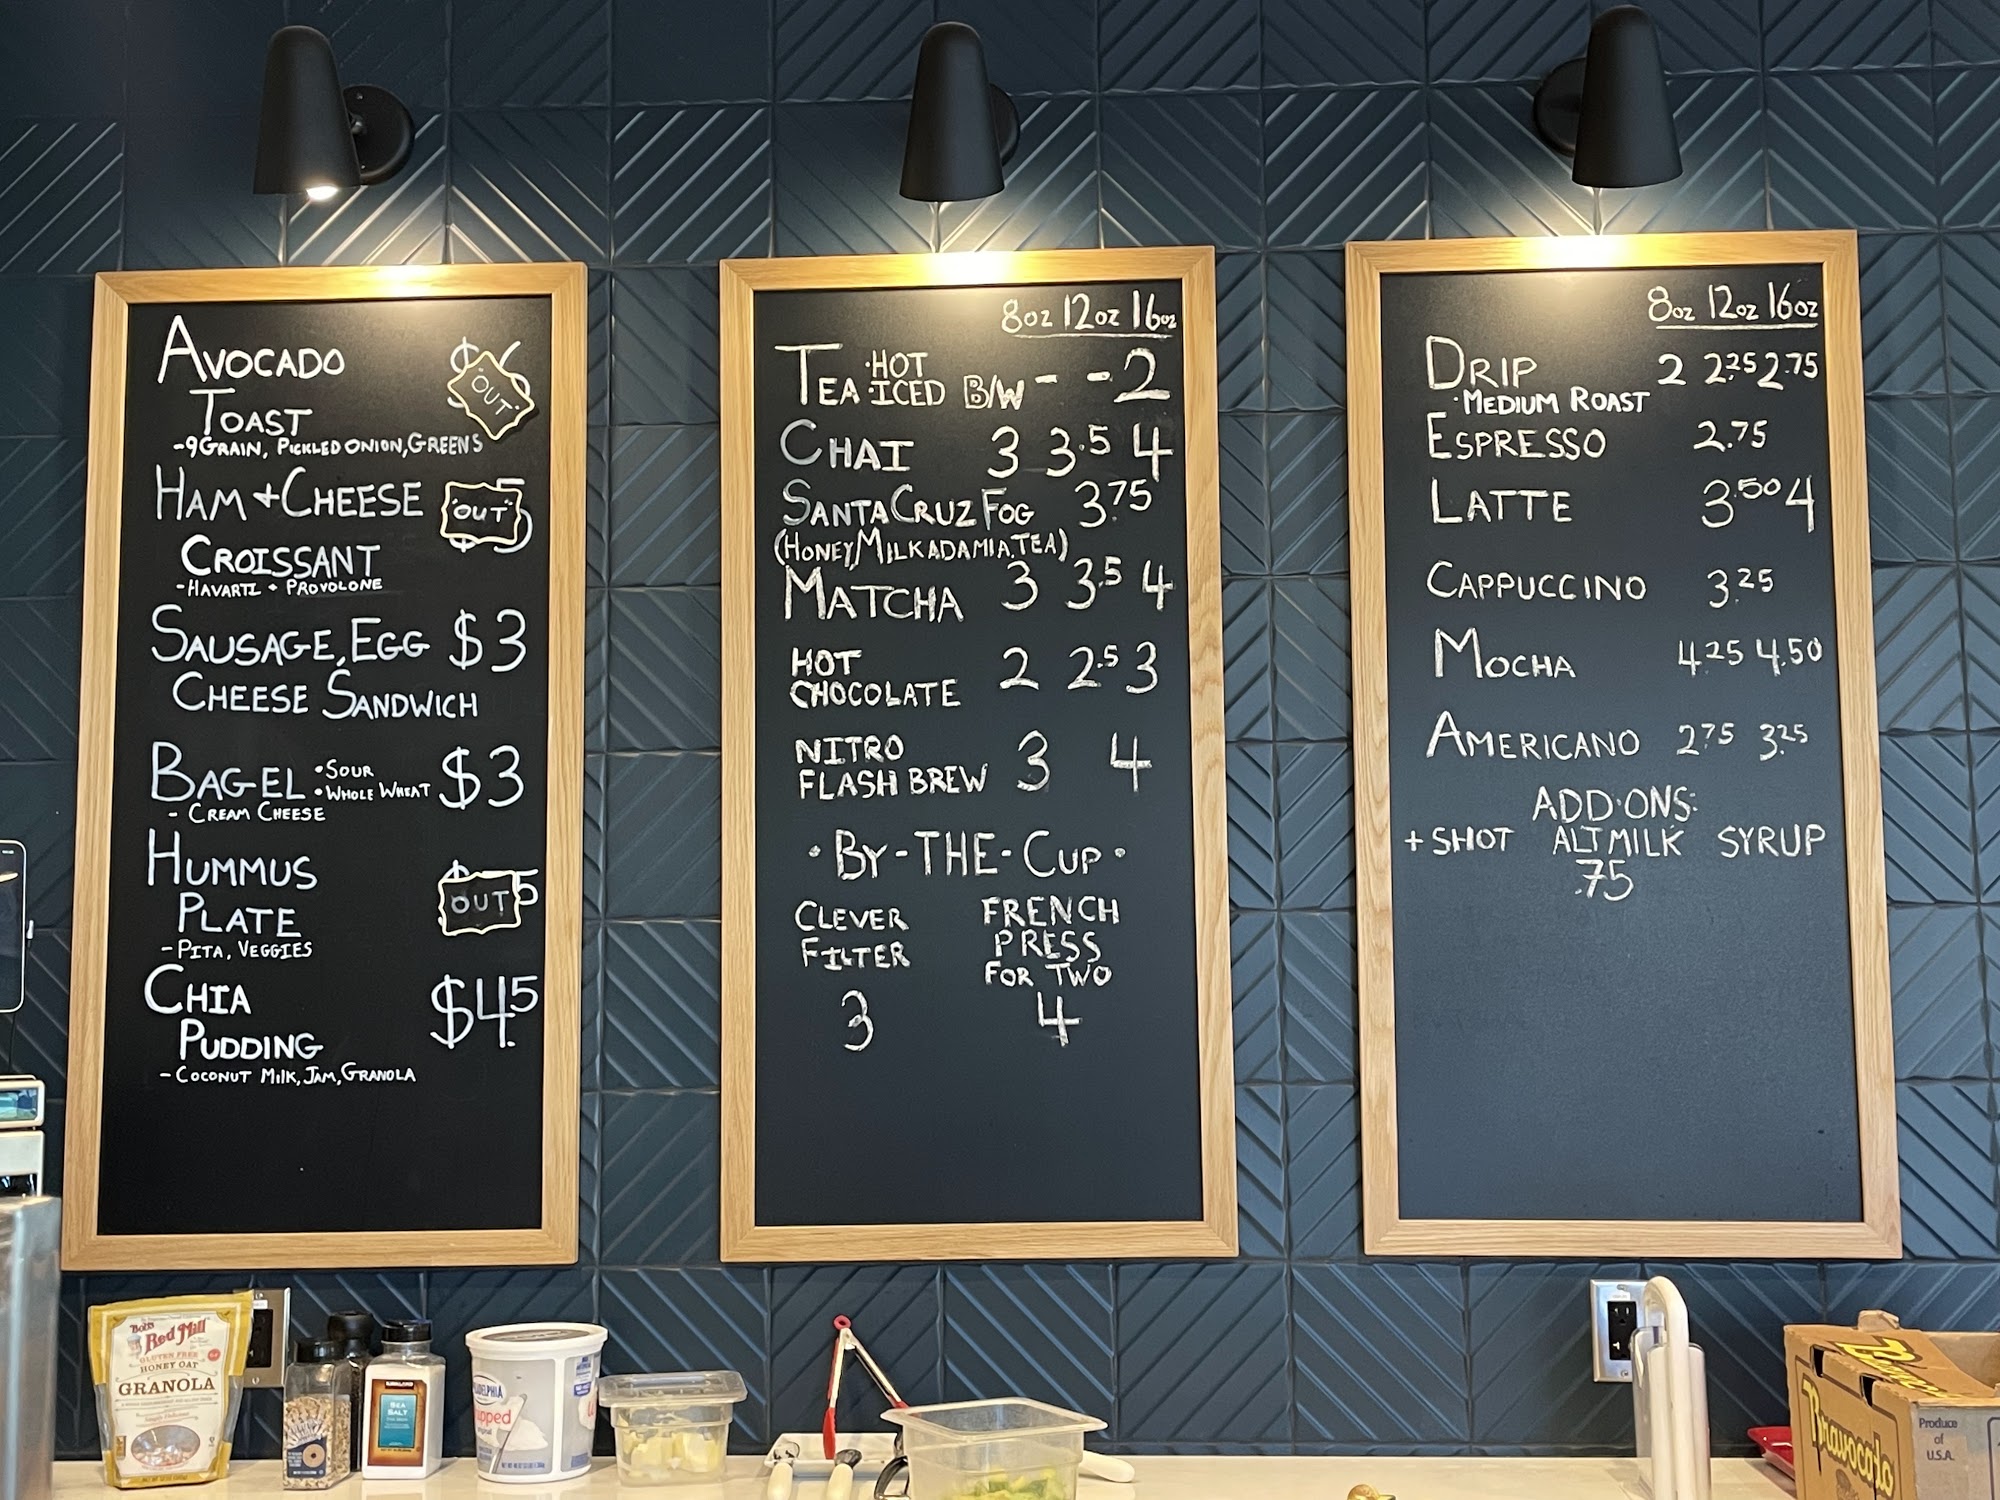 AVOCADO $6
"OUT"
TOAST
-9 GRAIN, PICKLED ONION, GREENS
HAM + CHEESE $5
"OUT"
CROISSANT
-HAVARTI + PROVOLONE
SAUSAGE, EGG $3
CHEESE SANDWICH
BAGEL •SOUR •WHOLE WHEAT $3
- CREAM CHEESE
HUMMUS
PLATE
OUT
-PITA, VEGGIES
CHIA $4.5
PUDDING
-COCONUT MILK, JAM, GRANOLA
8oz 12oz 16oz
TEA •HOT •ICED B/W - - 2
CHAI 3 3.5 4
SANTA CRUZ FOG 3.75
(HONEY, MILKADAMIA, TEA)
MATCHA 3 3.5 4
HOT
CHOCOLATE 2 2.5 3
NITRO
FLASH BREW 3 4
•BY-THE-CUP•
CLEVER
FILTER
3
FRENCH
PRESS
FOR TWO
4
8oz 12oz 16oz
DRIP 2 2.25 2.75
•MEDIUM ROAST
ESPRESSO 2.75
LATTE 3.50 4
CAPPUCCINO 3.25
MOCHA 4.25 4.50
AMERICANO 2.75 3.25
ADD•ONS:
+SHOT ALT MILK SYRUP
.75
Bob's
Red Mill
GLUTEN FREE
HONEY OAT
GRANOLA
KIRKLAND
SEA
SALT
Produce
of
U.S.A.